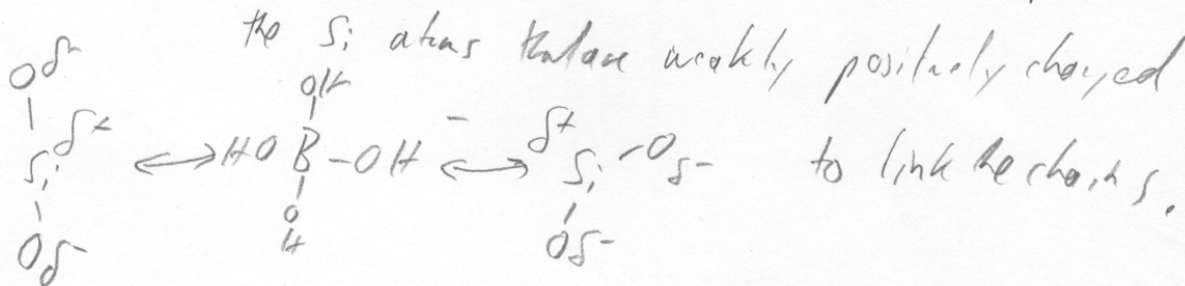 the Si atoms that are weakly positively charged
O δ-
OH
δ+ - δ+
Si ↔ HO B - OH ↔ Si - O δ- to link the chains.
O
H
O δ- O δ-